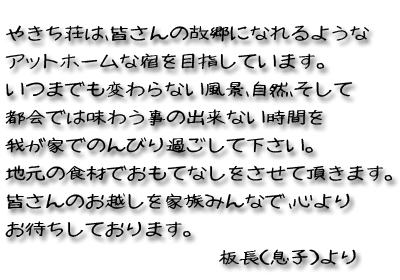 やきち荘は、皆さんの故郷になれるような
アットホームな宿を目指しています。
いつまでも変わらない風景、自然、そして
都会では味わう事の出来ない時間を
我が家でのんびり過ごして下さい。
地元の食材でおもてなしをさせて頂きます。
皆さんのお越しを家族みんなで、心より
お待ちしております。
板長(息子)より